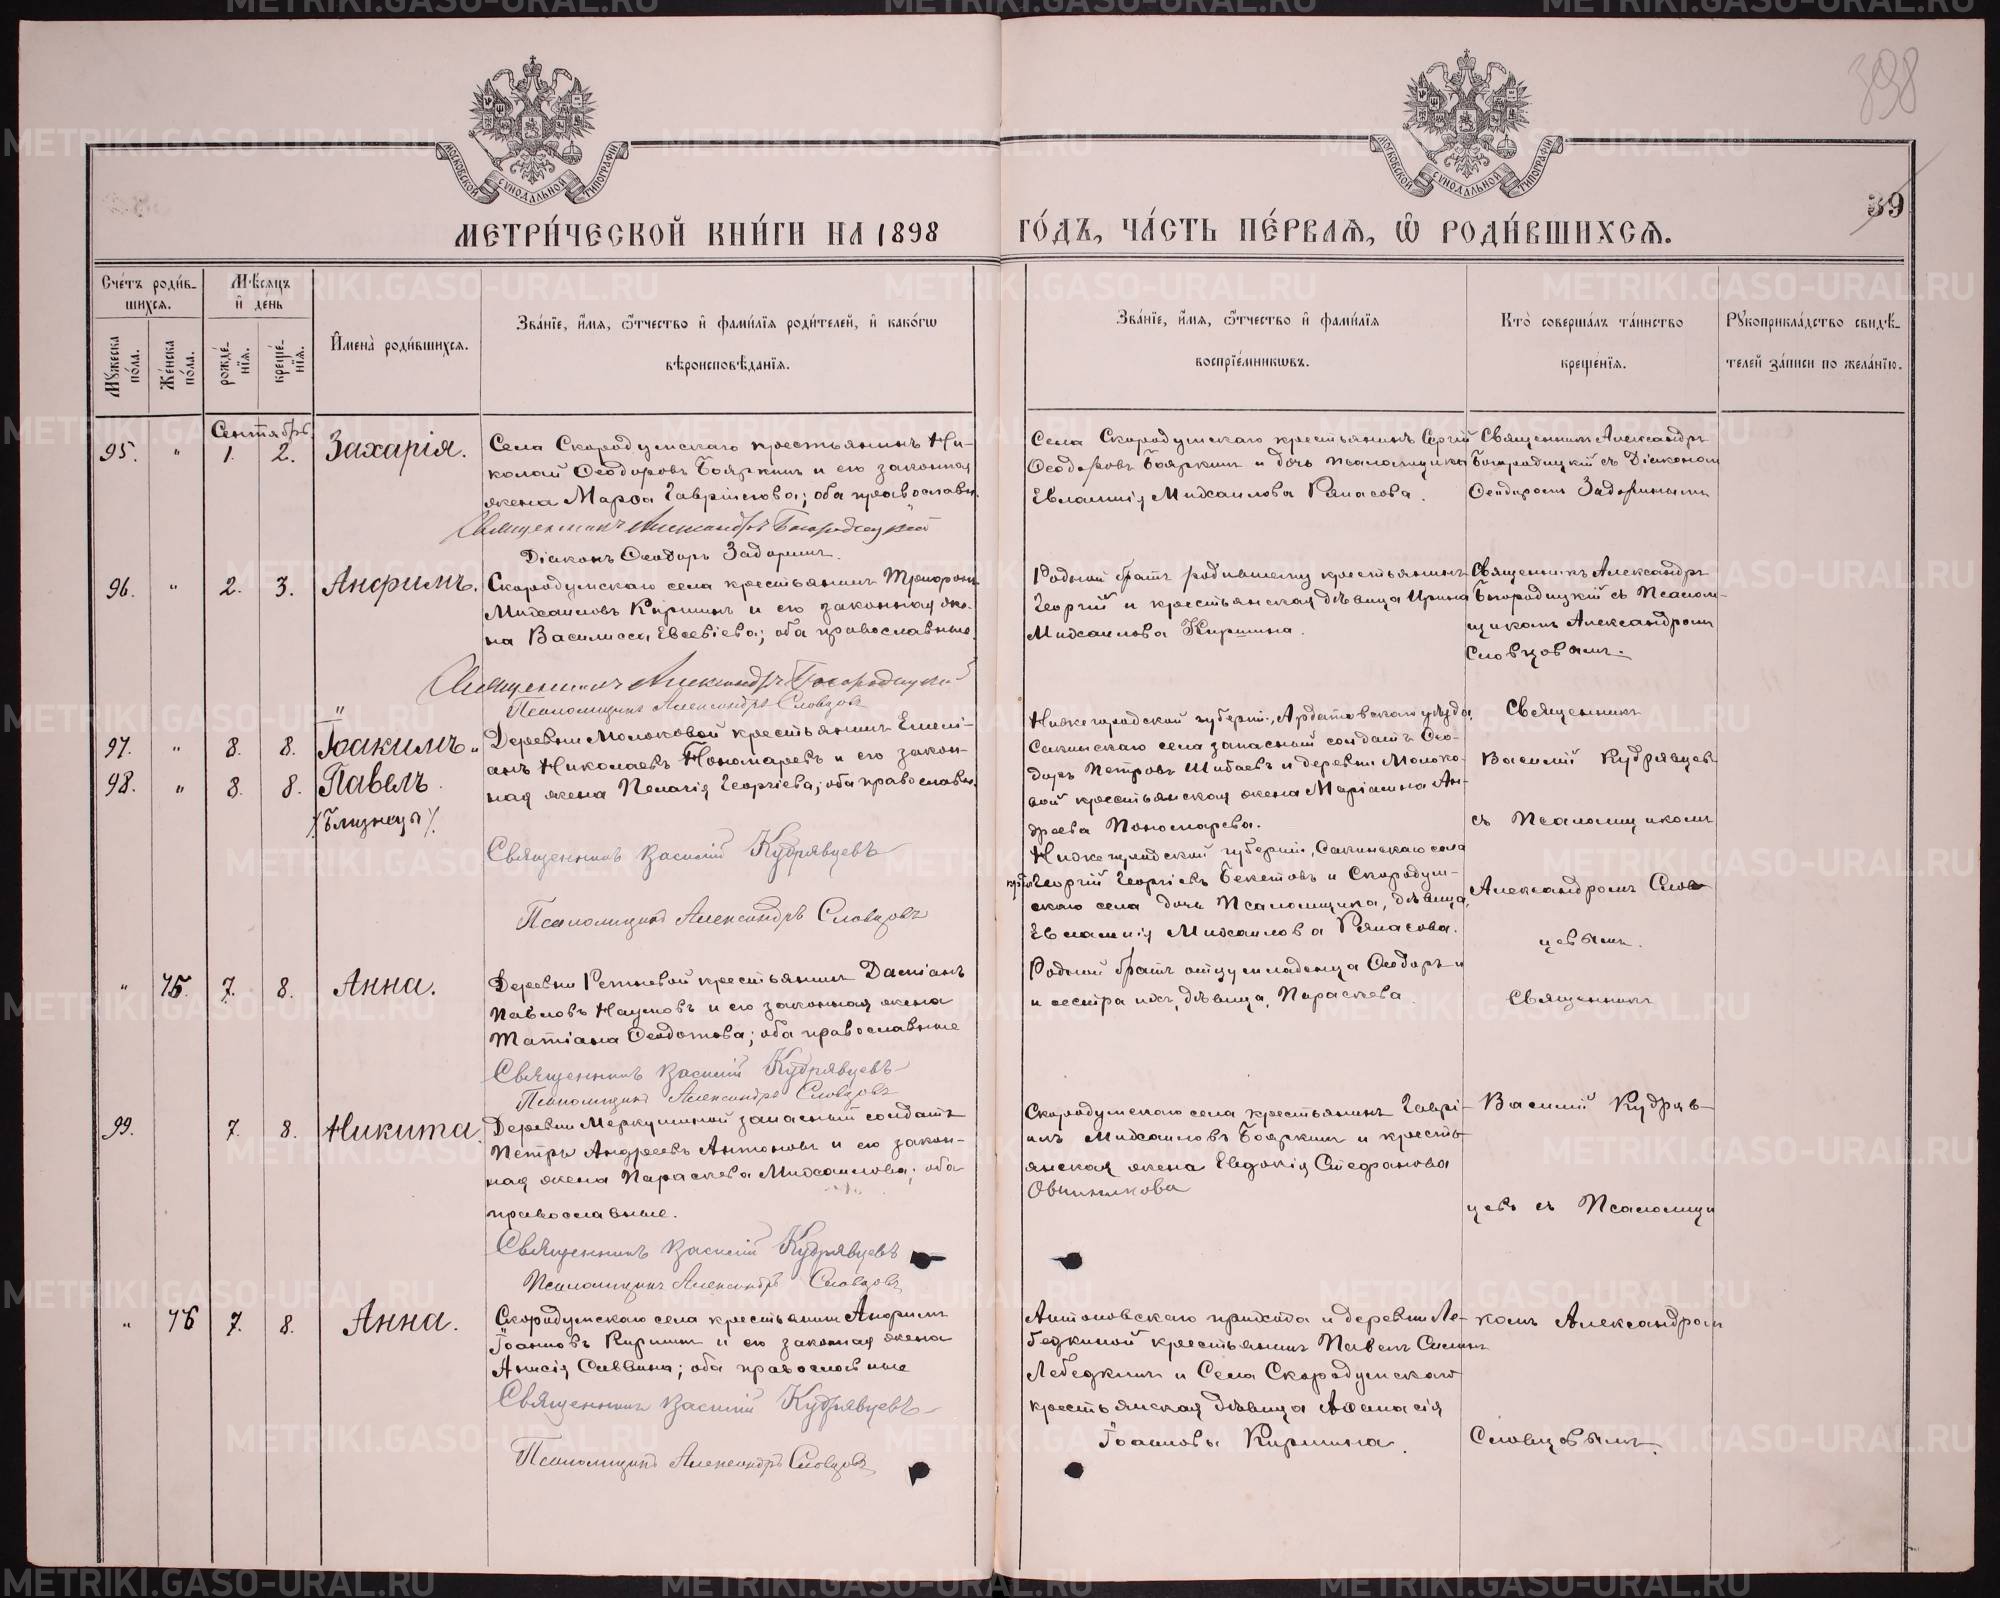 398
39
МОСКОВСКОЙ СѴНОДАЛЬНОЙ ТИПОГРАФІИ
МОСКОВСКОЙ СѴНОДАЛЬНОЙ ТИПОГРАФІИ
МЕТРИ́ЧЕСКОЙ КНИ́ГИ НА 1898 ГО́ДЪ, ЧА́СТЬ ПЕ́РВАЯ, Ѽ РОДИ́ВШИХСЯ.
Сче́тъ роди́в-
шихся.
Мѣ́сяцъ
и҆ де́нь
Мꙋжеска по́ла.
Же́нска по́ла.
рожде́нїя.
креще́нїя.
И҆мена̀ роди́вшихся.
Зва́нїе, и҆́мя, ѻ҆́тчество и҆ фами́лїя роди́телей, и҆ како́гѡ
вѣроисповѣ́данїя.
Зва́нїе, и҆́мя, ѻ҆́тчество и҆ фами́лїя
воспрїе́мникѡвъ.
Кто̀ соверша́лъ та́инство
креще́нїя.
Рꙋкоприкла́дство свидѣ́-
телей за́писи по жела́нїю.
Сентябрь.
95. " 1. 2. Захарія.
Села Скородумскаго крестьянинъ Ни-
колай Ѳеодоровъ Бояркинъ и его законная
жена Марѳа Гаврілова; оба православн.
Священникъ Александръ Богородицкій
Діаконъ Ѳеодоръ Задоринъ.
Села Скородумскаго крестьянинъ Сергій
Ѳеодоровъ Бояркинъ и дочь псаломщика
Евлампія Михаилова Ряпасова.
Священникъ Александръ
Богородицкій съ Діакономъ
Ѳеодоромъ Задоринымъ
96. " 2. 3. Анѳимъ.
Скородумскаго села крестьянинъ Трифонъ
Михаиловъ Киршинъ и его законная же-
на Василисса Евсевіева; оба православные
Священникъ Александръ Богородицкій
Псаломщикъ Александръ Словцовъ
Родной братъ родившему крестьянинъ
Георгій и крестьянская дѣвица Ирина
Михаилова Киршина.
Священникъ Александръ
Богородицкій съ Псалом-
щикомъ Александромъ
Словцовымъ.
97. " 8. 8. Іоакимъ "
98. " 8. 8. Павелъ.
/Близнецы/.
Деревни Молоковой крестьянинъ Емелі-
анъ Николаевъ Пономаревъ и его закон-
ная жена Пелагія Георгіева; оба православн.
Священникъ Василій Кудрявцевъ
Псаломщикъ Александръ Словцовъ
Нижегородской губерніи, Ардатовскаго уѣзда,
Сакинскаго села запасный солдатъ Ѳео-
доръ Петровъ Шибаевъ и деревни Молоко-
вой крестьянская жена Маріамна Ан-
дреева Пономарева.
Нижегородской губерніи, Сакинскаго села
Георгій Георгіевъ Бекетовъ и Скородум-
скаго села дочь Псаломщика, дѣвица,
Евлампія Михаилова Ряпасова.
Священникъ
Василій Кудрявцевъ
съ Псаломщикомъ
Александромъ Слов-
цовымъ.
" 75. 7. 8. Анна.
Деревни Ретневой крестьянинъ Даміанъ
Павловъ Наумовъ и его законная жена
Татіана Ѳеодотова; оба православные
Священникъ Василій Кудрявцевъ
Псаломщикъ Александръ Словцовъ
Родной братъ отцу младенца Ѳеодоръ и
и сестра ихъ, дѣвица, Параскева.
Священникъ
99. 7. 8. Никита.
Деревни Меркушиной запасный солдатъ
Петръ Андреевъ Антоновъ и его закон-
ная жена Параскева Михаилова; оба
православные.
Священникъ Василій Кудрявцевъ
Псаломщикъ Александръ Словцовъ
Скородумскаго села крестьянинъ Гаврі-
илъ Михаиловъ Бояркинъ и кресть-
янская жена Евдокія Стефанова
Овчинникова
Василій Кудряв-
цевъ съ Псаломщи
" 76 7. 8. Анна.
Скородумскаго села крестьянинъ Анѳимъ
Іоанновъ Киршинъ и его законная жена
Анисія Саввина; оба православные
Священникъ Василій Кудрявцевъ
Псаломщикъ Александръ Словцовъ
Антоновскаго прихода и деревни Ле-
бедкиной крестьянинъ Павелъ Силинъ
Лебедкинъ и Села Скородумскаго
крестьянская дѣвица Аѳанасія
Іоаннова Киршина.
комъ Александромъ
Словцовымъ.
METRIKI.GASO-URAL.RU